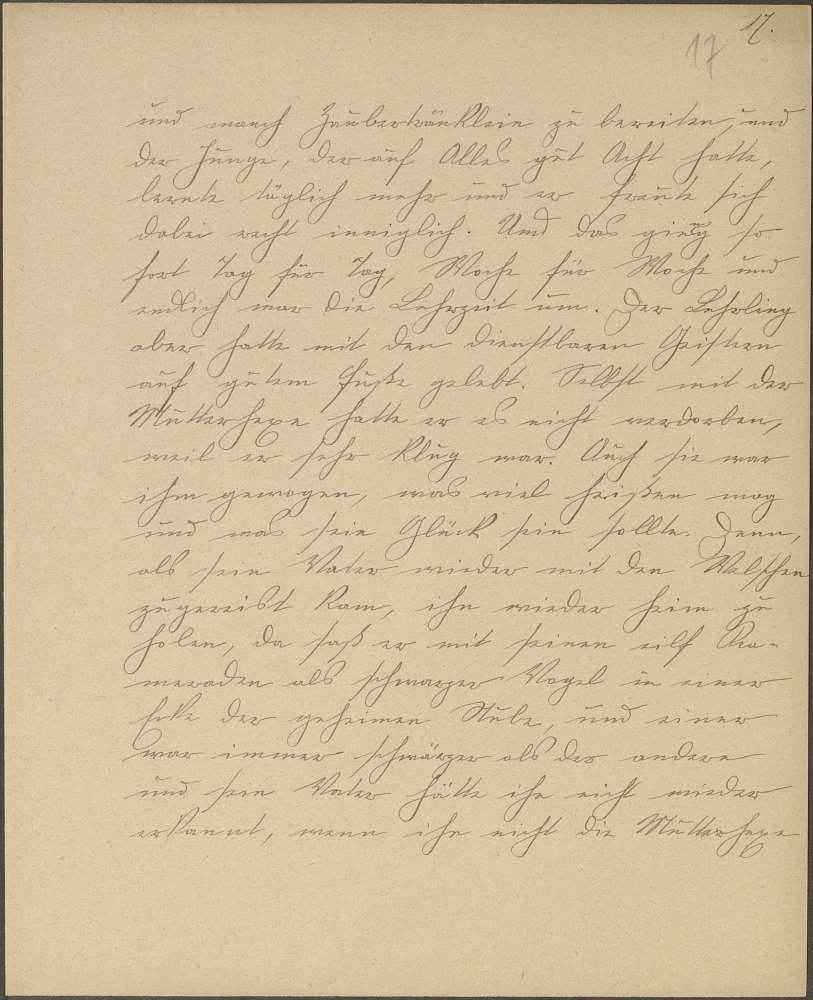 17.
17
und manch Zaubertränklein zu bereiten, und
der Junge, der auf Alles gut Acht hatte,
lernte täglich mehr und er freute sich
dabei recht inniglich. Und das gieng so
fort Tag für Tag, Woche für Woche und
endlich war die Lehrzeit um. Der Lehrling
aber hatte mit den dienstbaren Geistern
auf gutem Fuße gelebt. Selbst mit der
Mutterhexe hatte er es nicht verdorben,
weil er sehr klug war. Auch sie war
ihm gewogen, was viel heißen mag
und was sein Glück sein sollte. Denn,
als sein Vater wieder mit den Welschen
zugereist kam, ihn wieder heim zu
holen, da saß er mit seinen eilf Ka-
meraden als schwarzer Vogel in einer
Ecke der geheimen Stube, und einer
war immer schwärzer als der andere
und sein Vater hätte ihn nicht wieder
erkannt, wenn ihn nicht die Mutterhexe